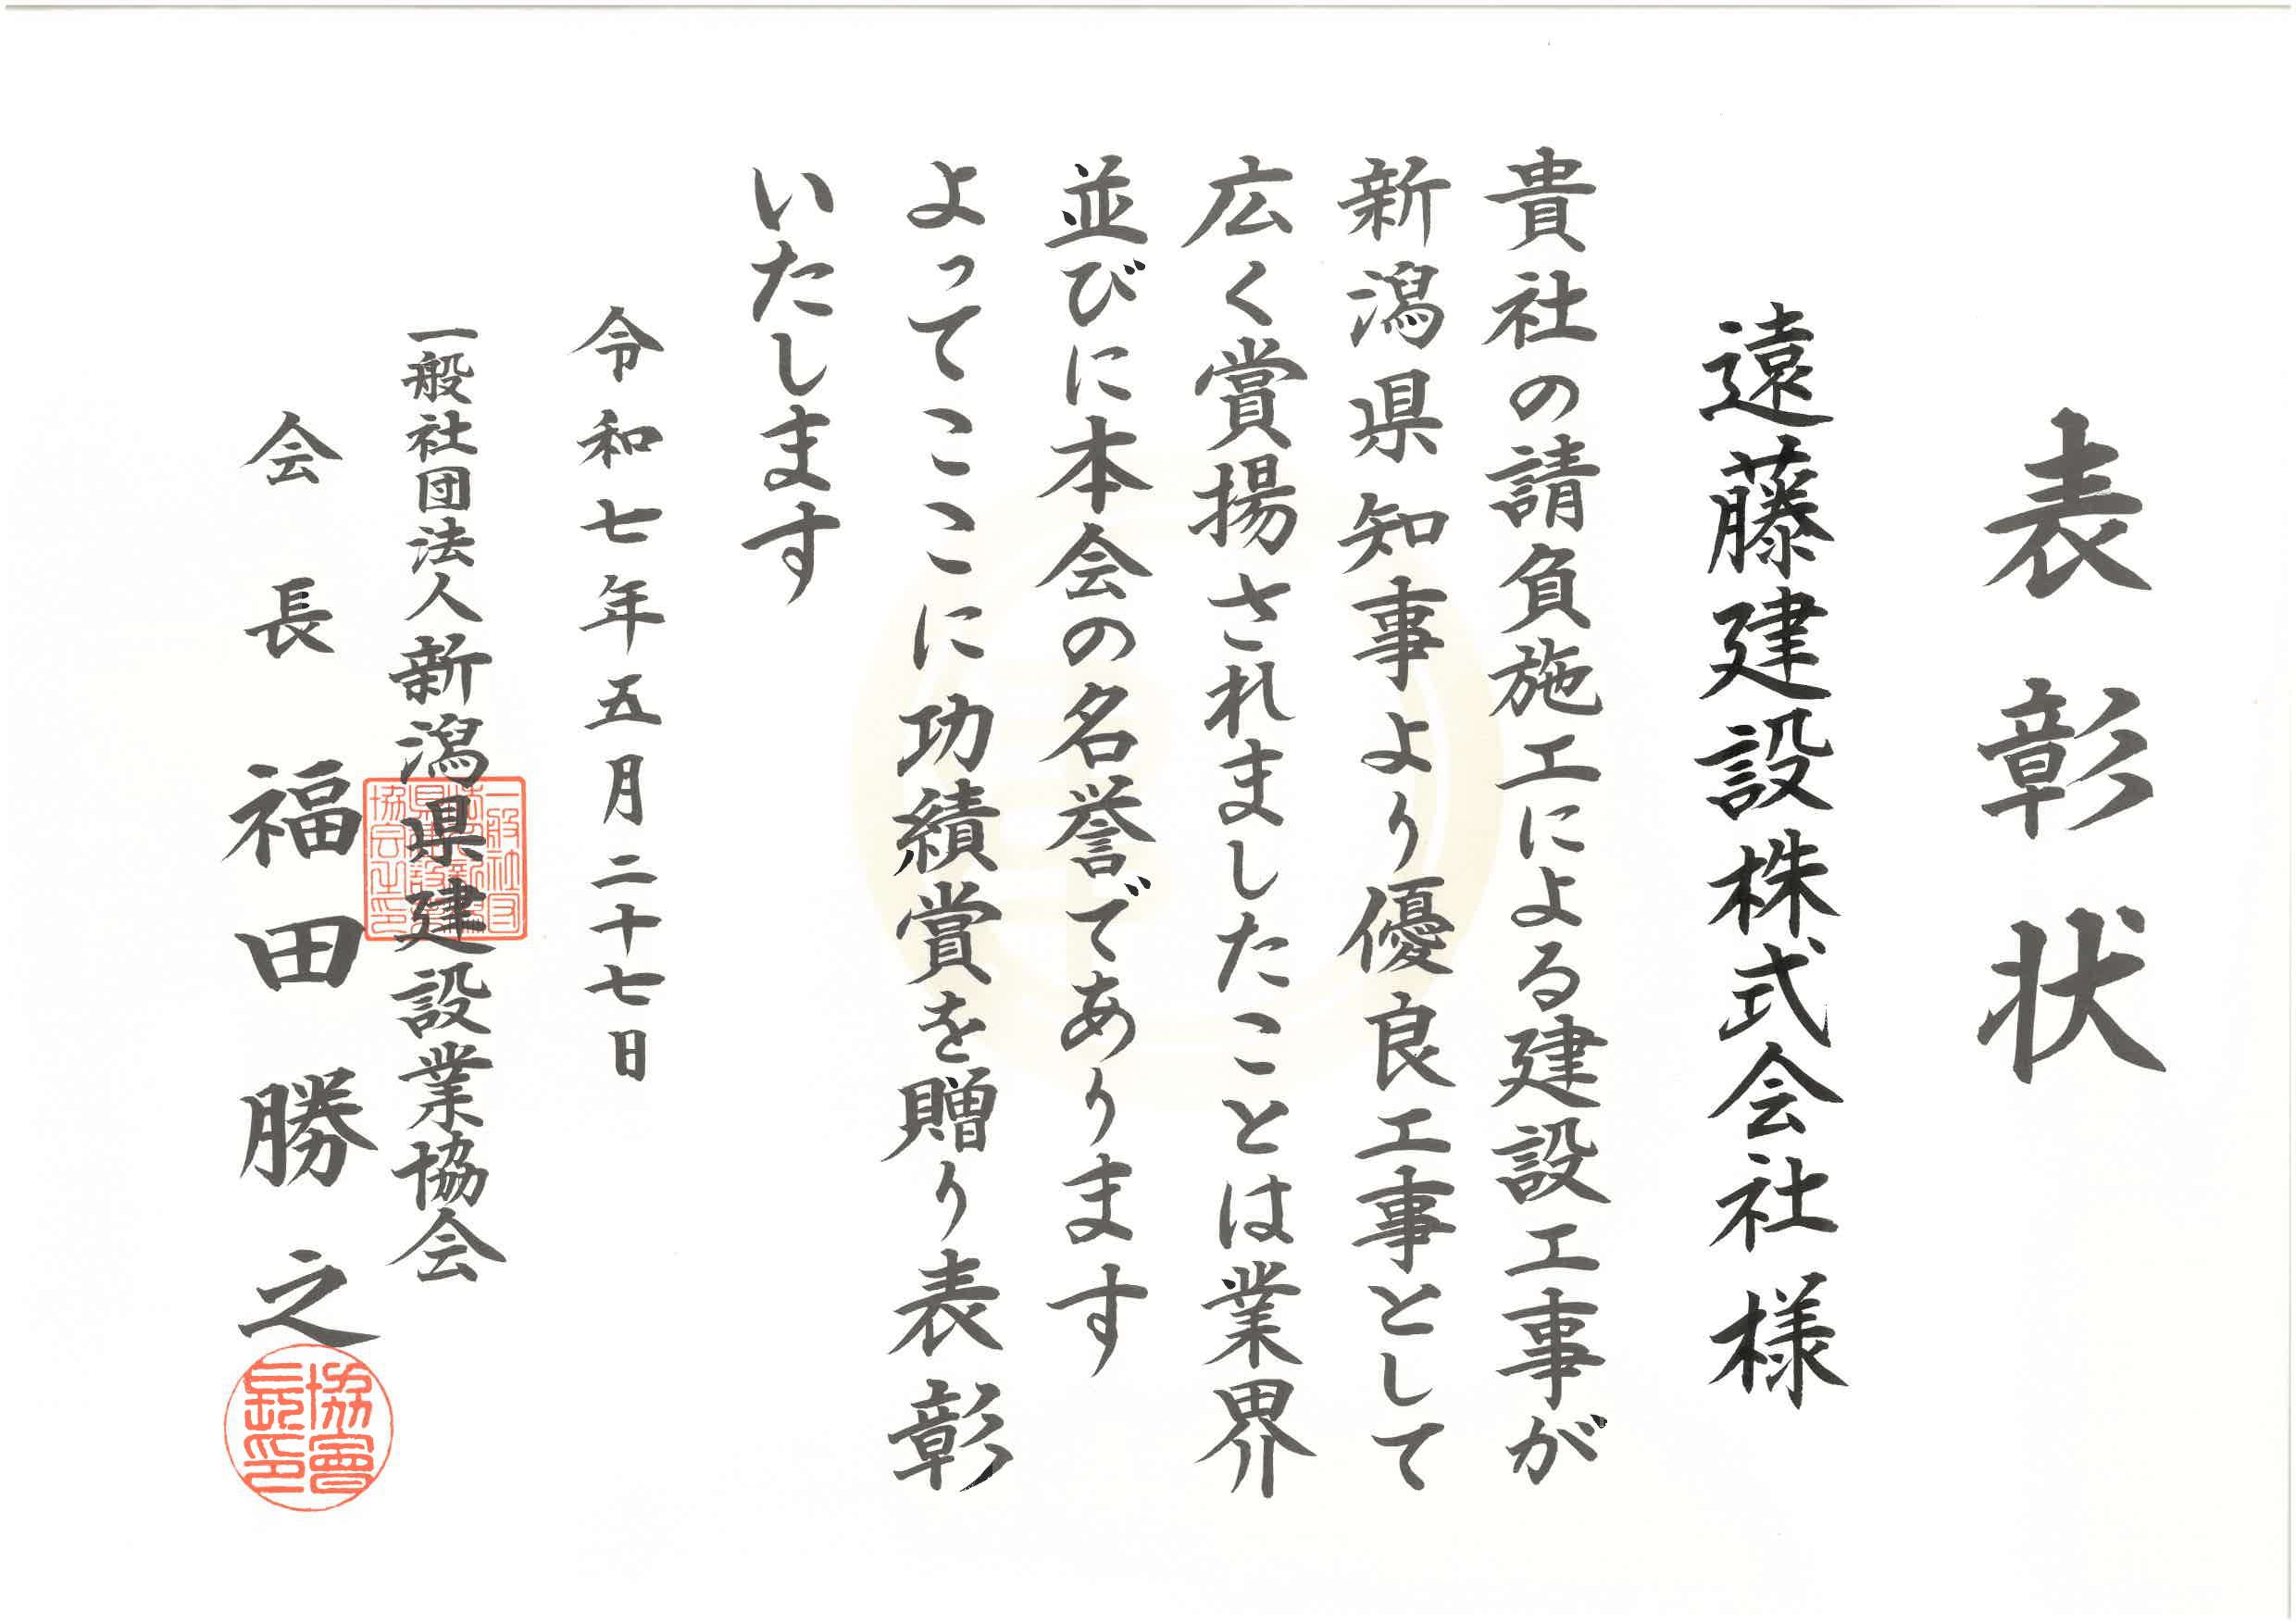 表彰状
遠藤建設株式会社様
貴社の請負施工による建設工事が
新潟県知事より優良工事として
広く賞揚されましたことは業界
並びに本会の名誉であります
よってここに功績賞を贈り表彰
いたします
令和七年五月二十七日
一般社団法人新潟県建設業協会
会長 福田勝之
協會
長印